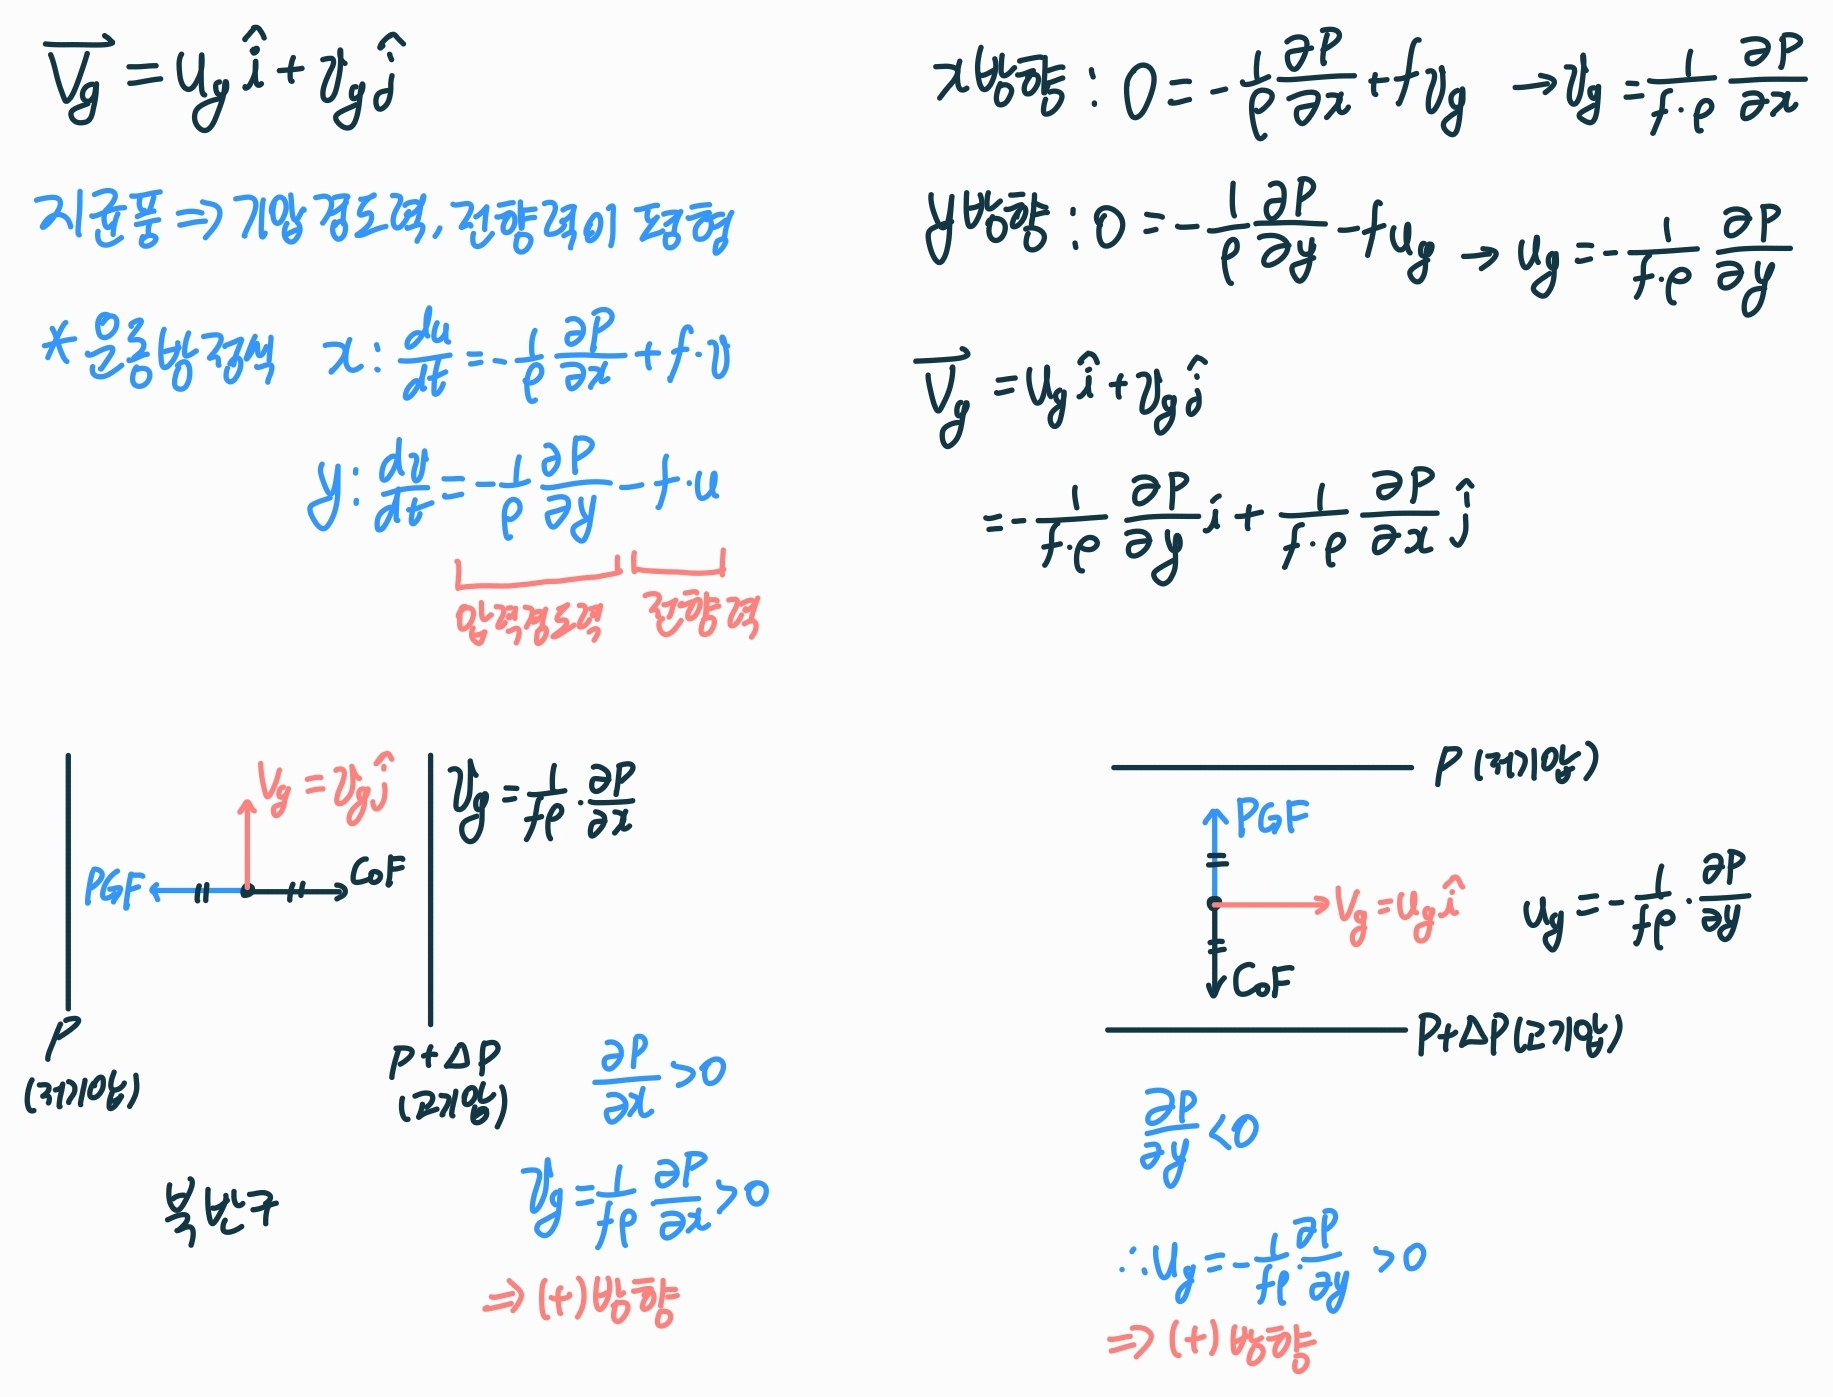 $\overrightarrow{V_g} = u_g \hat{i} + v_g \hat{j}$
지균풍 ⇒ 기압 경도력, 전향력이 평형
* 운동방정식 $x: \frac{du}{dt} = -\frac{1}{\rho} \frac{\partial P}{\partial x} + f \cdot v$
$y: \frac{dv}{dt} = -\frac{1}{\rho} \frac{\partial P}{\partial y} - f \cdot u$
압력경도력 전향력
x방향 : $0 = -\frac{1}{\rho} \frac{\partial P}{\partial x} + f v_g$ → $v_g = \frac{1}{f \cdot \rho} \frac{\partial P}{\partial x}$
y방향 : $0 = -\frac{1}{\rho} \frac{\partial P}{\partial y} - f u_g$ → $u_g = -\frac{1}{f \cdot \rho} \frac{\partial P}{\partial y}$
$\overrightarrow{V_g} = u_g \hat{i} + v_g \hat{j}$
$= -\frac{1}{f \cdot \rho} \frac{\partial P}{\partial y} i + \frac{1}{f \cdot \rho} \frac{\partial P}{\partial x} \hat{j}$
$V_g = v_g \hat{j}$
$v_g = \frac{1}{f\rho} \cdot \frac{\partial P}{\partial x}$
PGF
CoF
P
(저기압)
P+ΔP
(고기압)
$\frac{\partial P}{\partial x} > 0$
북반구
$v_g = \frac{1}{f\rho} \frac{\partial P}{\partial x} > 0$
⇒ (+)방향
P (저기압)
PGF
$V_g = u_g \hat{i}$
$u_g = -\frac{1}{f\rho} \cdot \frac{\partial P}{\partial y}$
CoF
P+ΔP(고기압)
$\frac{\partial P}{\partial y} < 0$
$\therefore u_g = -\frac{1}{f\rho} \cdot \frac{\partial P}{\partial y} > 0$
⇒ (+)방향